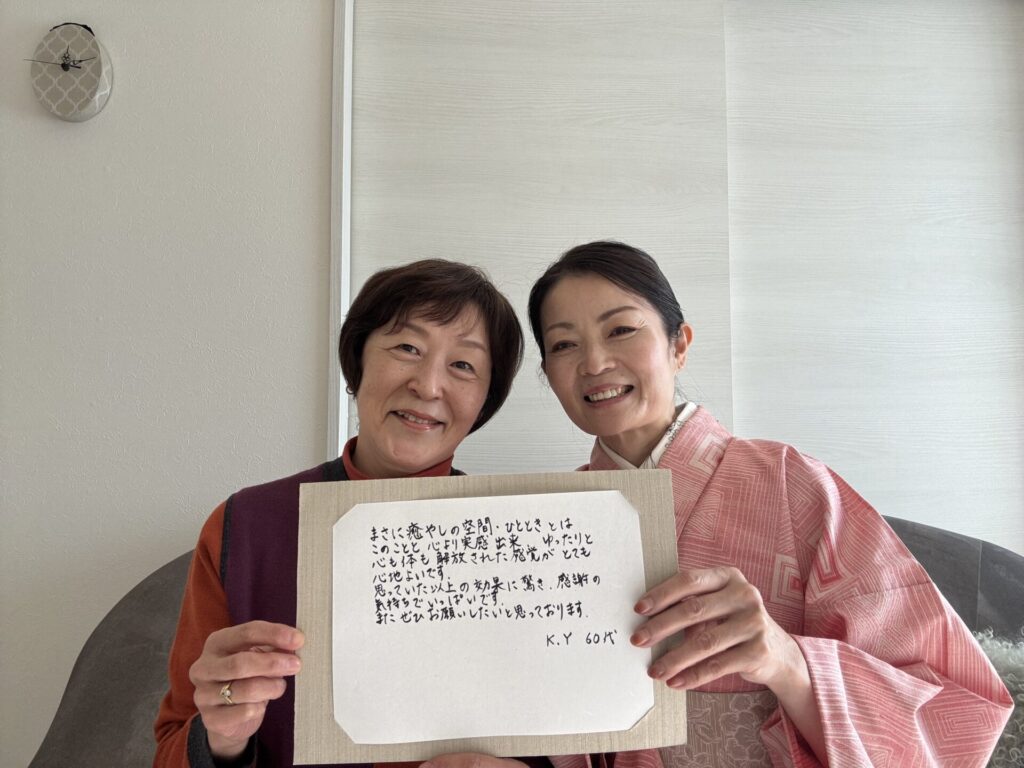 まさに癒やしの空間・ひとときとは
このことと心より実感出来、ゆったりと
心も体も解放された感覚がとても
心地よいです。
思っていた以上の効果に驚き、感謝の
気持ちでいっぱいです。
またぜひお願いしたいと思っております。
K.Y 60代